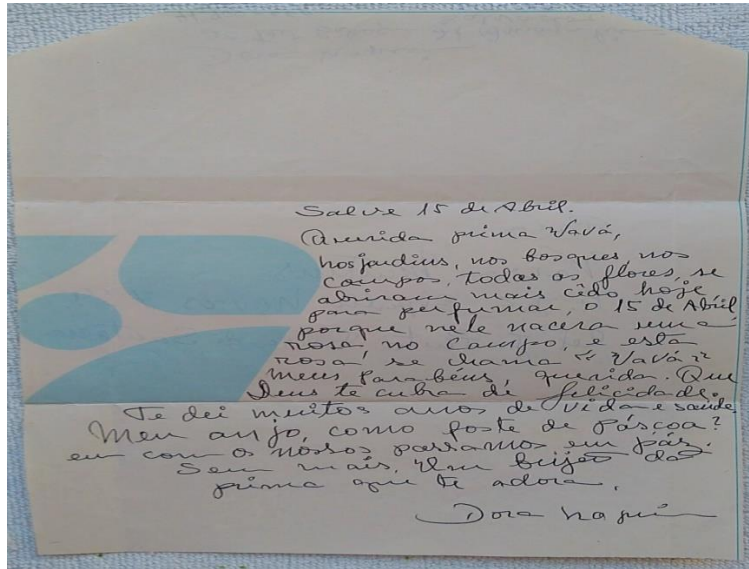 Salve 15 de Abril.
Querida prima Vavá,
nos jardins, nos bosques, nos
campos, todas as flores, se
abriram mais cêdo hoje
para perfumar, o 15 de Abril
porque nele nacera uma
rosa, no campo, e esta
rosa, se chama "Vavá"
meus parabéns, querida. Que
Deus te cubra de felicidade.
Te dei muitos anos de vida e saúde
Meu anjo, como foste de páscoa?
eu com os nossos passamos em páz.
Sem mais, um beijão da
prima que te adora.
Dora